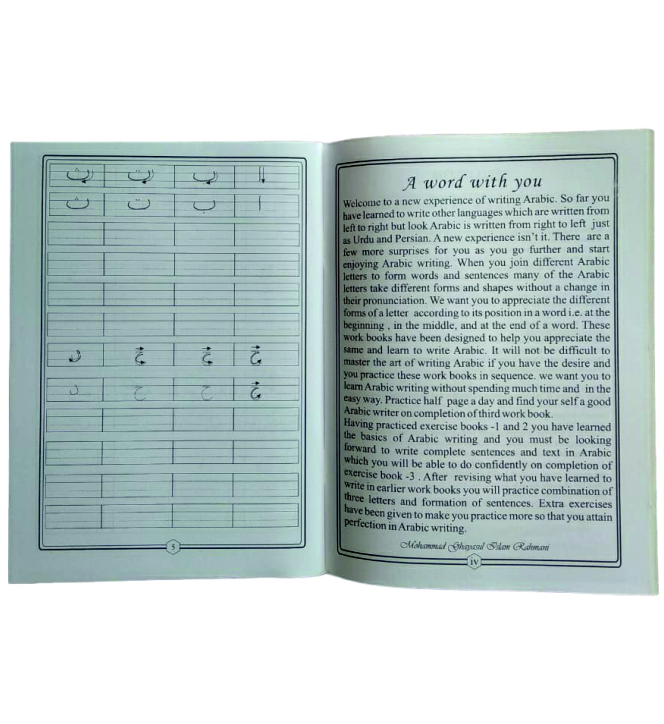 A word with you
Welcome to a new experience of writing Arabic. So far you
have learned to write other languages which are written from
left to right but look Arabic is written from right to left just
as Urdu and Persian. A new experience isn't it. There are a
few more surprises for you as you go further and start
enjoying Arabic writing. When you join different Arabic
letters to form words and sentences many of the Arabic
letters take different forms and shapes without a change in
their pronunciation. We want you to appreciate the different
forms of a letter according to its position in a word i.e. at the
beginning , in the middle, and at the end of a word. These
work books have been designed to help you appreciate the
same and learn to write Arabic. It will not be difficult to
master the art of writing Arabic if you have the desire and
you practice these work books in sequence. we want you to
learn Arabic writing without spending much time and in the
easy way. Practice half page a day and find your self a good
Arabic writer on completion of third work book.
Having practiced exercise books -1 and 2 you have learned
the basics of Arabic writing and you must be looking
forward to write complete sentences and text in Arabic
which you will be able to do confidently on completion of
exercise book -3 . After revising what you have learned to
write in earlier work books you will practice combination of
three letters and formation of sentences. Extra exercises
have been given to make you practice more so that you attain
perfection in Arabic writing.
Mohammad Ghayasul Islam Rahmani
iv
ا ب ت ث
ا ب ت ث
5